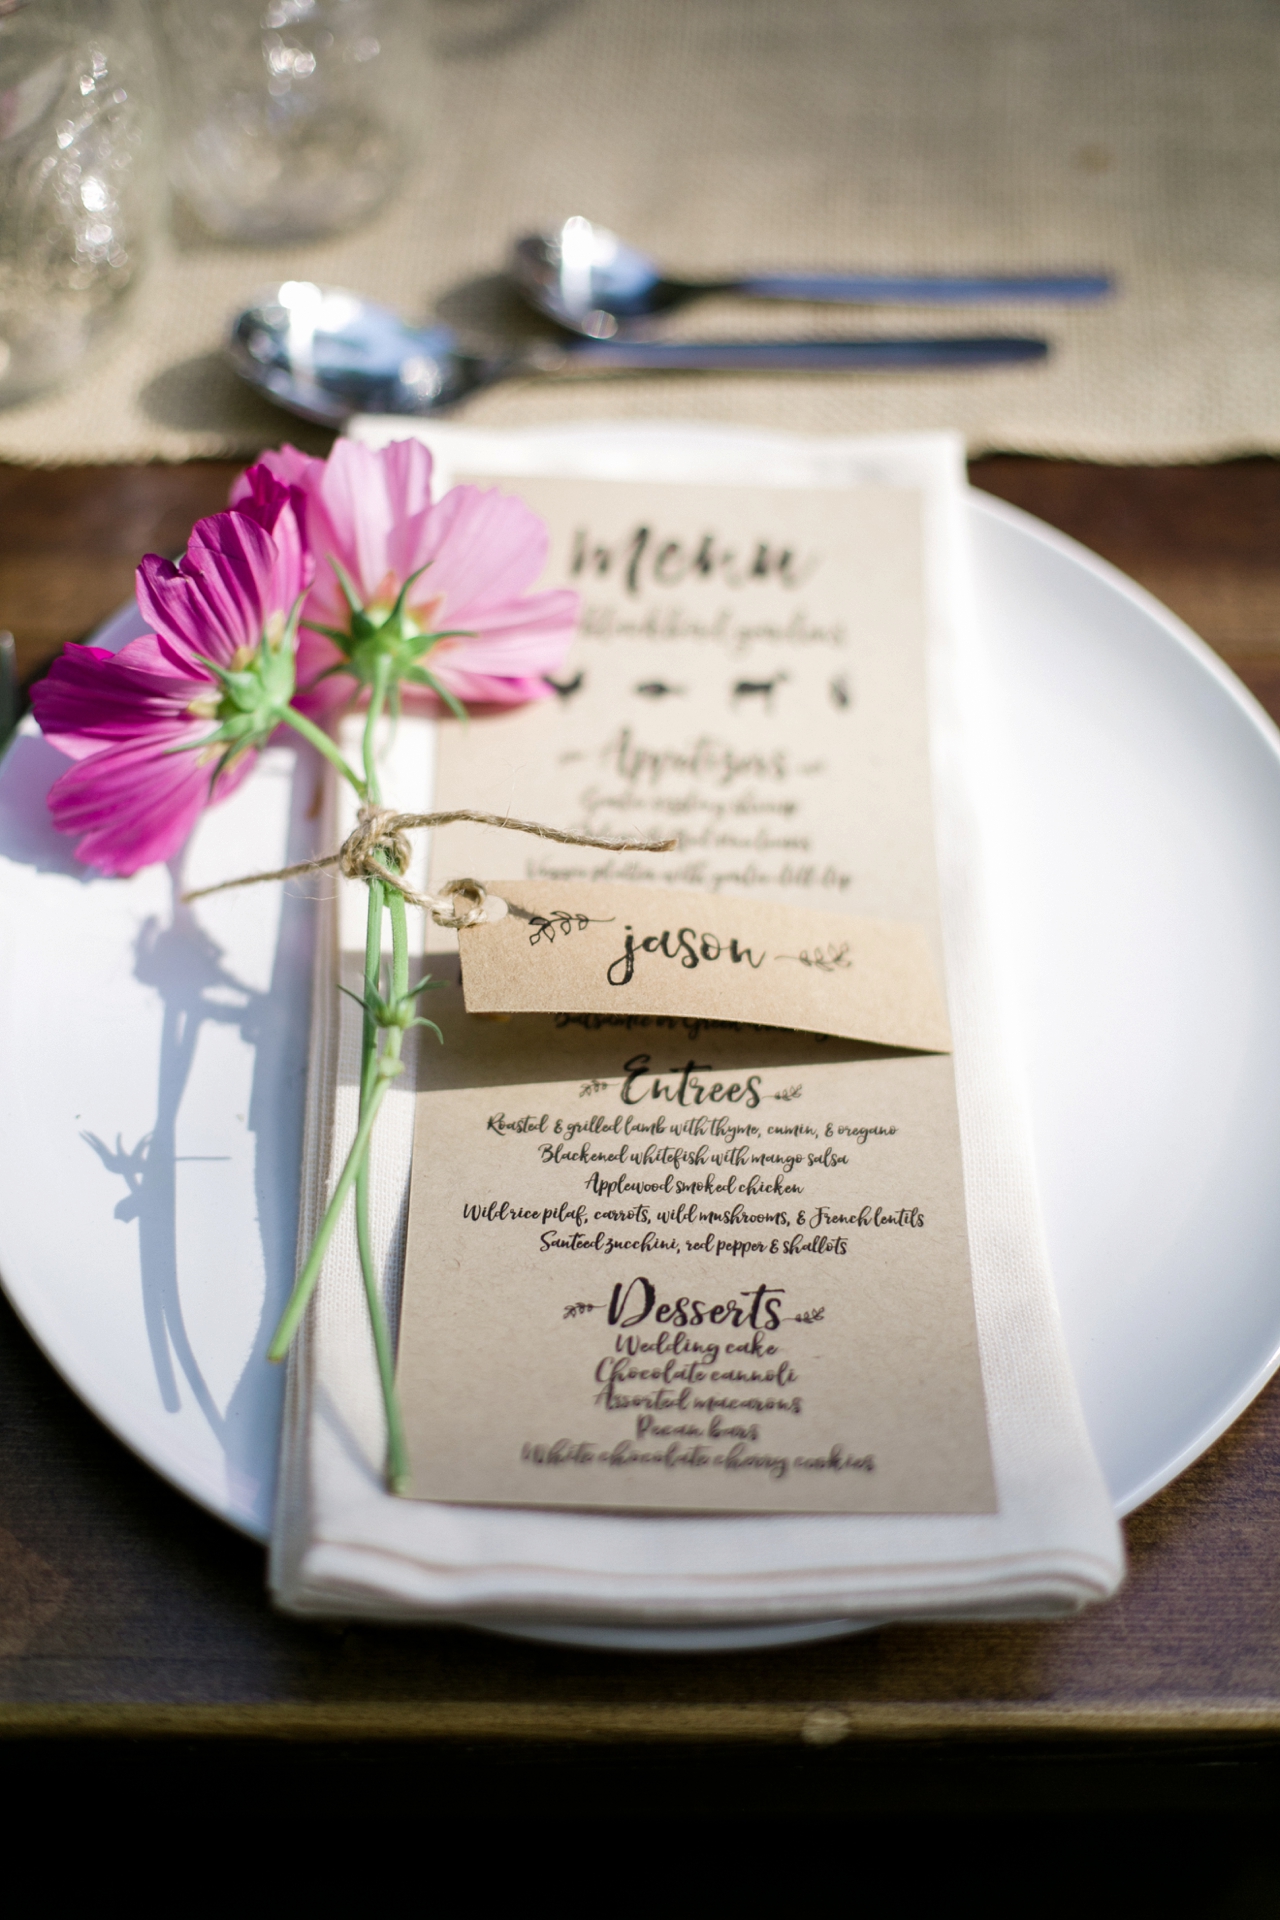 menu
Appetizers
Veggie platter with garlic dill dip
jason
Entrees
Roasted & grilled lamb with thyme, cumin, & oregano
Blackened whitefish with mango salsa
Applewood smoked chicken
Wild rice pilaf, carrots, wild mushrooms, & French lentils
Sauteed zucchini, red pepper & shallots
Desserts
Wedding cake
Chocolate cannoli
Assorted macarons
Pecan bars
White chocolate cherry cookies